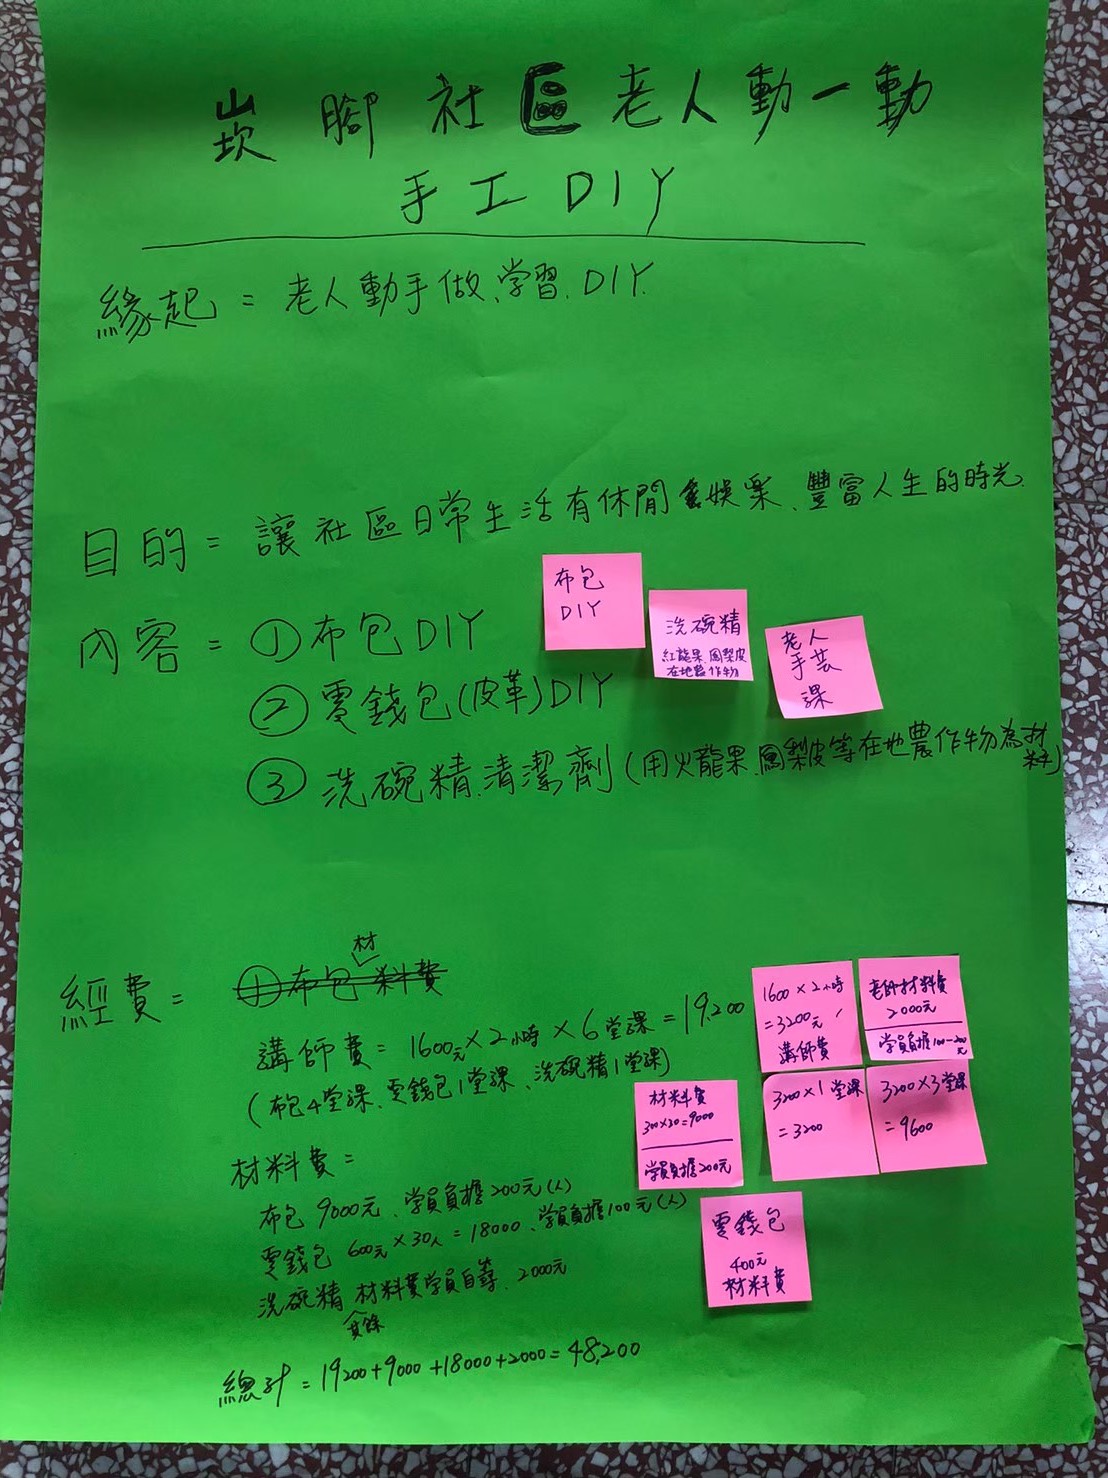 崁腳社區老人動一動
手工DIY
緣起=老人動手做、学習、DIY.
目的=讓社區日常生活有休閒娛樂、豐富人生的時光.
內容=①布包DIY
②零錢包(皮革)DIY
③洗碗精.清潔劑(用火龍果.鳳梨皮等在地農作物為材料)
布包
DIY
洗碗精
紅龍果.鳳梨皮
在地農作物
老人
手芸
課
經費=①布包材料費
講師費=1600元×2小時×6堂課=19,200
(布包4堂課、零錢包1堂課、洗碗精1堂課)
材料費=
布包 9000元、学員負擔200元(人)
零錢包 600元×30人=18000、学員負擔100元(人)
洗碗精 其餘材料費学員自籌、2000元
總計=19200+9000+18000+2000=48,200
1600×2小時
=3200元
講師費
老師材料費
2000元
学員負擔100-200元
材料費
300×30=9000
学員負擔200元
3200×1堂課
=3200
3200×3堂課
=9600
零錢包
400元
材料費